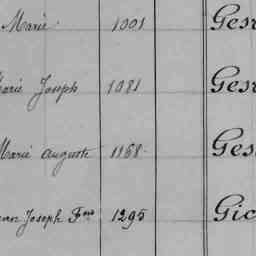 Marie 1001 Ges
Marie Joseph 1081 Ges
Marie Auguste 1168 Ges
Joseph Fçois 1295 Gic